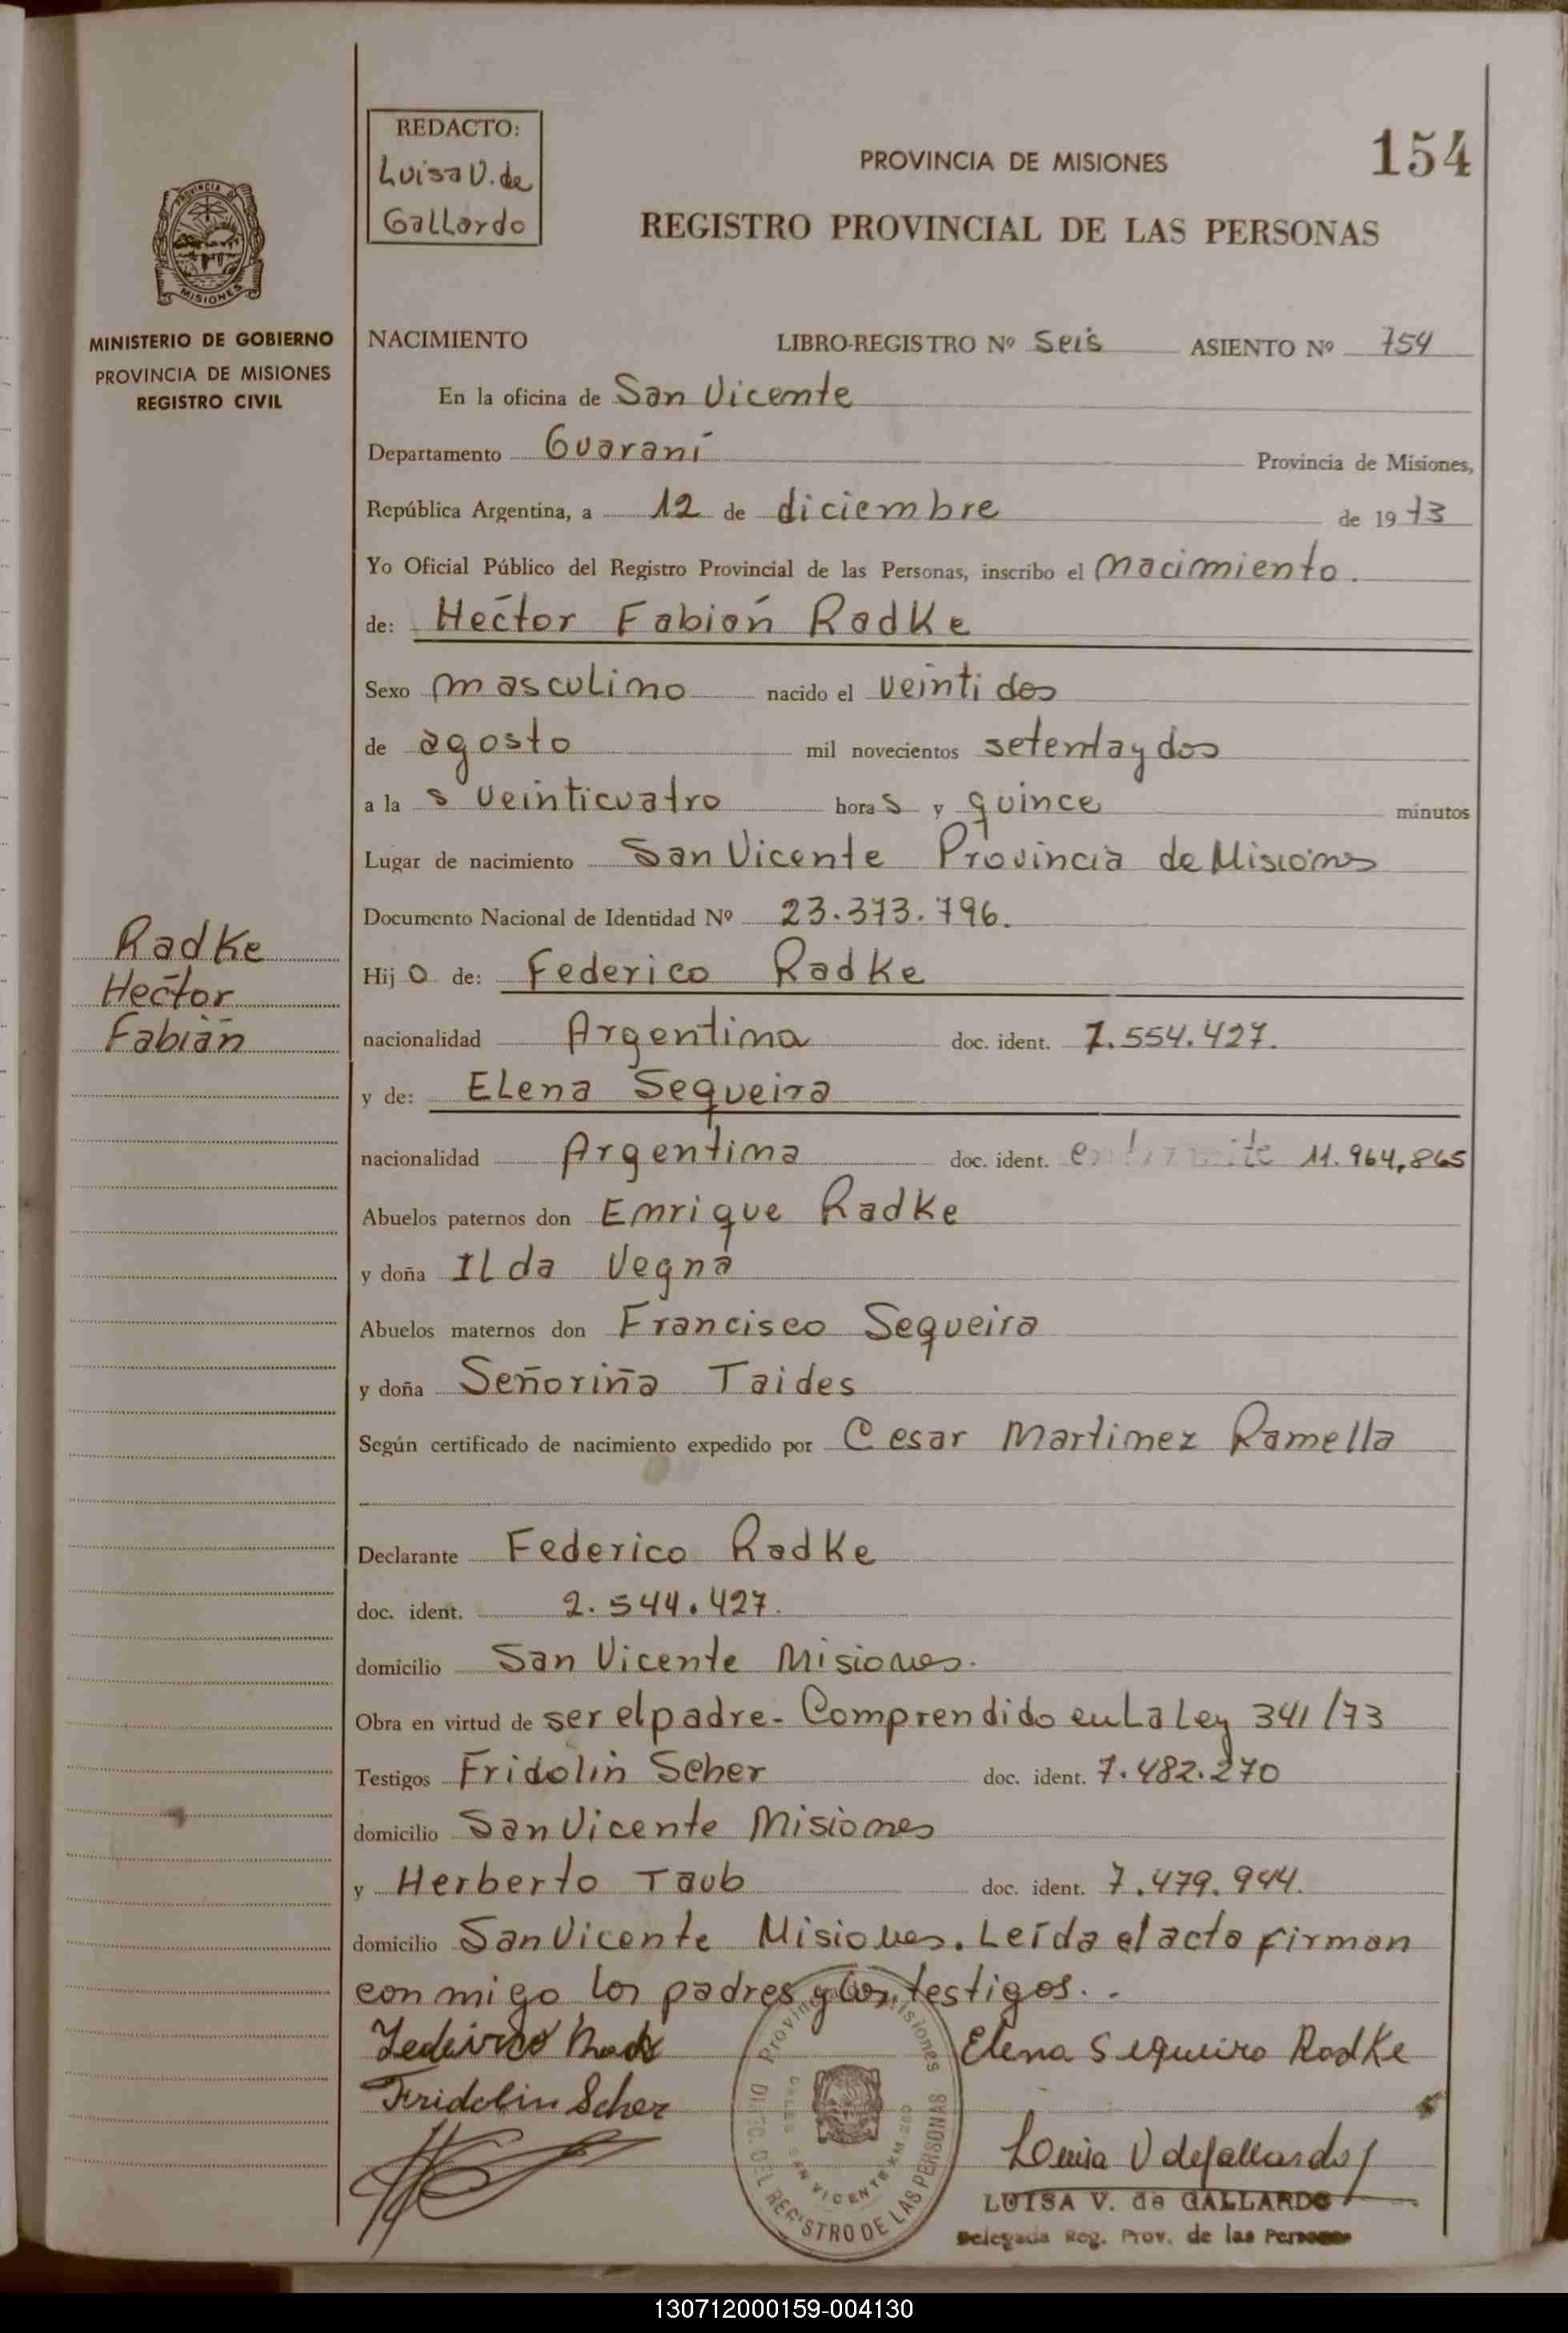 REDACTO:
Luisa V. de
Gallardo
154
PROVINCIA DE MISIONES
REGISTRO PROVINCIAL DE LAS PERSONAS
PROVINCIA DE
MISIONES
MINISTERIO DE GOBIERNO
PROVINCIA DE MISIONES
REGISTRO CIVIL
NACIMIENTO LIBRO-REGISTRO Nº Seis ASIENTO Nº 754
En la oficina de San Vicente
Departamento Guaraní Provincia de Misiones,
República Argentina, a 12 de diciembre de 1973
Yo Oficial Público del Registro Provincial de las Personas, inscribo el nacimiento.
de: Hector Fabián Radke
Sexo masculino nacido el veinti dos
de agosto mil novecientos setenta y dos
a la s veinticuatro horas y quince minutos
Lugar de nacimiento San Vicente Provincia de Misiones
Documento Nacional de Identidad Nº 23.373.796.
Radke
Hector
Fabián
Hijo de: Federico Radke
nacionalidad Argentina doc. ident. 7.554.427.
y de: Elena Sequeira
nacionalidad Argentina doc. ident. 11.964.865
Abuelos paternos don Enrique Radke
y doña Ilda Vegna
Abuelos maternos don Francisco Sequeira
y doña Señoriña Taides
Según certificado de nacimiento expedido por Cesar Martinez Ramella
Declarante Federico Radke
doc. ident. 2.544.427.
domicilio San Vicente Misiones.
Obra en virtud de ser el padre- Comprendido en La Ley 341/73
Testigos Fridolin Scher doc. ident. 7.482.270
domicilio San Vicente Misiones
y Herberto Taub doc. ident. 7.479.944.
domicilio San Vicente Misiones. Leída el acta firman
conmigo los padres y los testigos. .
Federico Radk
Elena Sequeira Radke
Fridolin Scher
Provincia de Misiones
DIREC. DEL REGISTRO DE LAS PERSONAS
SAN VICENTE KM. 260
Luisa V de Gallardo
LUISA V. de GALLARDO
Delegada Reg. Prov. de las Personas
130712000159-004130